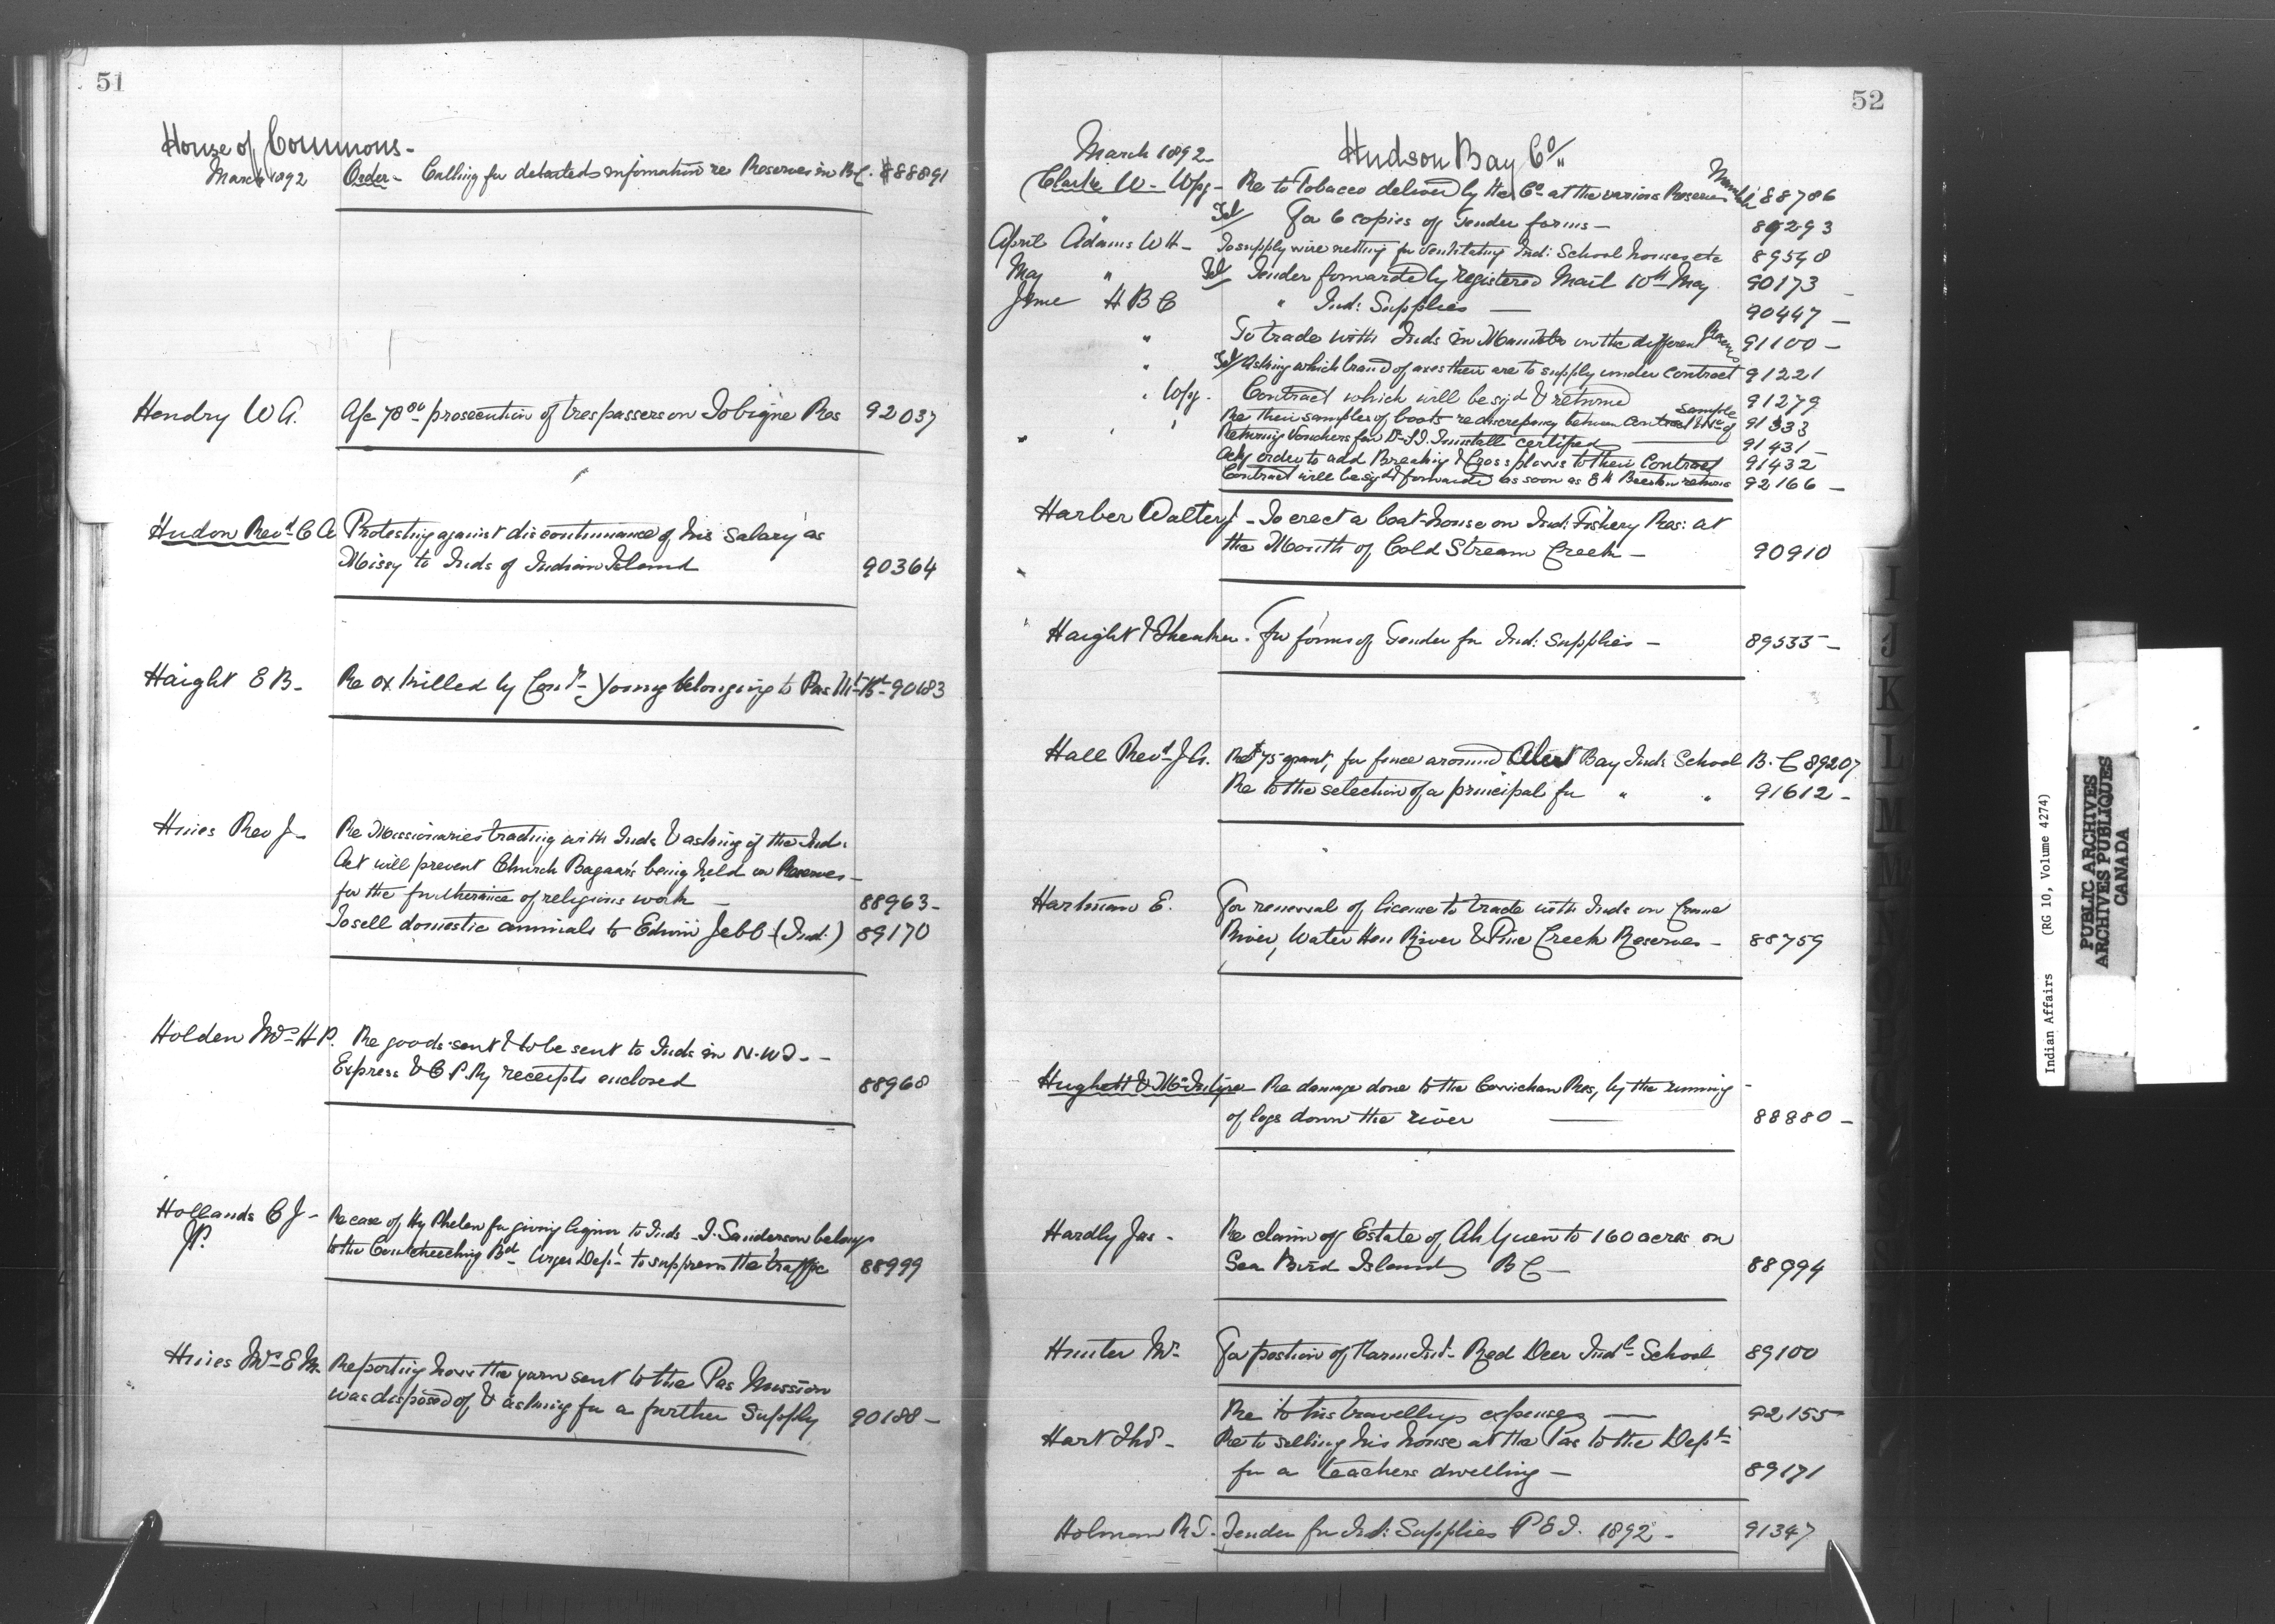 51
House of Commons -
March 1892 Order - Calling for detailed information re Reserves in B.C. 88891
Hendry W A. A/c 78 prosecution of trespassers on Tobique Res 92037
Hudon Revd C A Protesting against discontinuance of his salary as
Missy to Inds of Indian Island 90364
Haight E B - Re ox killed by Const Young belonging to Pas Mt Bd 90183
Hines Rev J - Re Missionaries trading with Inds & asking if the Ind:
Act will prevent Church Bazaar's being held on Reserves -
for the furtherance of religious work - 88963 -
To sell domestic animals to Edwin Jebb (Ind:) 89170
Holden Mrs H P. Re goods sent & to be sent to Inds in N.W.T. -
Express & C P. Ry receipts enclosed 88968
Hollands C J - Re case of Hy Phelan for giving liquor to Inds - J. Sanderson belongs
J P. to the Coutcheeching Bd - Urges Dept to suppress the traffic 88999
Hines Mrs E M. Reporting how the yarn sent to the Pas Mission
was disposed of & asking for a further Supply 90188 -
52
March 1892 Hudson Bay Co
Clarke W - Wpg - Re to Tobacco delivered by the Co at the various Reserves 88786
" Tel/ For 6 copies of Tender forms - 89293
April Adams W H - To supply wire netting for ventilating Ind: School houses etc 89598
May " Tel/ Tender forwarded by registered Mail 10th May 90173 -
June H B C " Ind: Supplies - 90447 -
" To trade with Inds in Manitoba on the different Reserves 91100 -
" Tel/ Asking which brand of axes they are to supply under contract 91221
" Wpg. Contract which will be sigd & returned 91279
Re their samples of boots re discrepancy between contract & sample 91333
Returning Vouchers for certified 91431 -
Ackg order to add Breaking & Cross plows to their Contract 91432
Contract will be sigd & forwarded as soon as returns 92166 -
Harber Walter J - To erect a boat-house on Ind: Fishery Res: at
the Mouth of Cold Stream Creek - 90910
Haight & For forms of Tender for Ind: Supplies - 89535 -
Hall Revd J A. Re $75 grant, for fence around Alert Bay Inds School B.C 89207
Re to the selection of a principal for " " 91612 -
Hartman E. For renewal of license to trade with Inds on Crane
River, Water Hen River & Pine Creek Reserves - 88759
Hughett & McIntyre Re damage done to the Cowichan Res, by the running -
of logs down the river 88880 -
Hardly Jas - Re claim of Estate of Ah Yuen to 160 acres on
Sea Bird Island B C - 88994
Hunter Mr - For position of Farm Inst - Red Deer Indl School 89100
Re to his travelling expenses 92155
Hart Thos - Re to selling his house at the Pas to the Dept -
for a teachers dwelling - 89171
Holman R T. Tender for Ind: Supplies P E I. 1892 - 91347
I
J
K
L
M
Indian Affairs (RG 10, Volume 4274)
PUBLIC ARCHIVES
ARCHIVES PUBLIQUES
CANADA